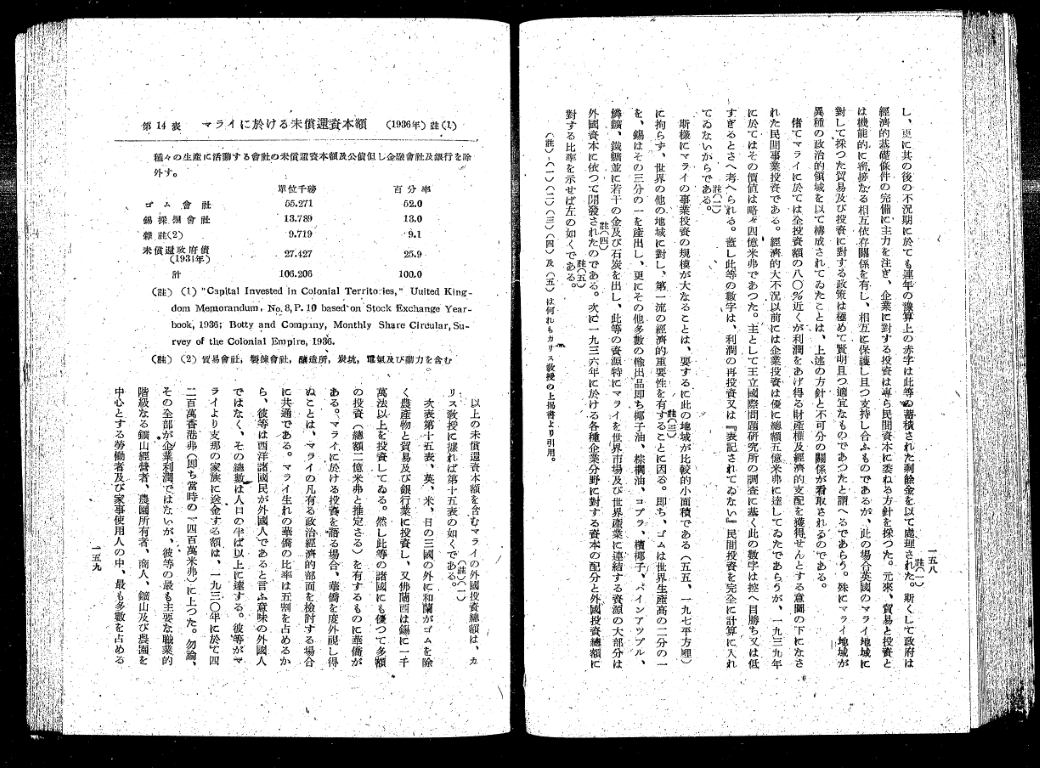 一五八
し、更に其の後の不況期に於ても連年の豫算上の赤字は此等の蓄積された剩餘金を以て處理された。斯くして政府は
註(一)
經濟的基礎條件の完備に主力を注ぎ、企業に對する投資は專ら民間資本に委ねる方針を採つた。元來、貿易と投資と
は機能的に密接なる相互依存關係を有し、相互に保護し且つ支持し合ふものであるが、此の場合英國のマライ地域に
對して採つた貿易及び投資に對する政策は極めて賢明且つ適宜なものであつたと謂へるであらう。殊にマライ地域が
異種の政治的領域を以て構成されてゐたことは、上述の方針と不可分の關係が看取されるのである。
偖てマライに於ては全投資額の八〇%近くが利潤をあげ得る財產權及び經濟的支配を獲得せんとする意圖の下になさ
れた民間事業投資である。經濟的大不況以前には企業投資は優に總額五億米弗に達してゐたであらうが、一九三九年
に於てはその價値は略々四億米弗であつた。主として王立國際問題研究所の調査に基く此の數字は控へ目勝ち又は低
すぎるとさへ考へられる。蓋し此等の數字は、利潤の再投資又は『表記されてゐない』民間投資を完全に計算に入れ
てゐないからである。
註(二)
斯樣にマライの事業投資の規模が大なることは、要するに此の地域が比較的小面積である(五五、一九七平方哩)
に拘らず、世界の他の地域に對し、第一流の經濟的重要性を有することに因る。卽ち、ゴムは世界生產高の二分の一
註(三)
を、錫はその三分の一を產出し、更にその他多數の輸出品卽ち椰子油、棕櫚油、コプラ、檳椰子、パインアップル、
鱗鑛、鐵鑛並に若干の金及び石炭を出し、此等の資源特にマライを世界市場及び世界產業に連結する資源の大部分は
註(四)
外國資本に依つて開發されたのである。次に一九三六年に於ける各種企業分野に對する資本の配分と外國投資總額に
註(五)
對する比率を示せば左の如くである。
(註)(一)(二)(三)(四)及(五)は何れもカリス敎授の上揭書より引用。
第14表 マライに於ける未償還資本額 (1936年) 註(1)
種々の生產に活動する會社の未償還資本額及公債但し金融會社及銀行を除
外す。
單位千磅 百分率
ゴム會社 55.271 52.0
錫採掘會社 13.789 13.0
雜註(2) 9.719 9.1
未償還政府債(1931年) 27.427 25.9
計 106.206 100.0
(註) (1) "Capital Invested in Colonial Territories," United King-
dom Memorandum, No. 8, P. 10 based on Stock Exchange Year-
book, 1936; Botty and Company, Monthly Share Circular, Su-
rvey of the Colonial Empire, 1936.
(註) (2) 貿易會社, 製鍊會社, 釀造所, 炭坑, 電氣及び動力を含む
以上の未償還資本額を含むマライの外國投資總額は、カ
リス敎授に據れば第十五表の如くである。
註(一)
次表第十五表、英、米、日の三國の外に和蘭がゴムを除
く農產物と貿易及び銀行業に投資し、又佛蘭西は錫に一千
萬法以上を投資してゐる。然し此等の諸國にも優つて多額
の投資(總額二億米弗と推定さる)を有するものに華僑が
ある。マライに於ける投資を語る場合、華僑を度外視し得
ぬことは、マライの凡有る政治經濟的部面を檢討する場合
に共通である。マライ生れの華僑の比率は五割を占めるか
ら、彼等は西洋諸國民が外國人であると言ふ意味の外國人
ではなく、その總數は人口の半ば以上に達する。彼等がマ
ライより支那の家族に送金する額は、一九三〇年に於て四
二百萬香港弗(卽ち當時の一四百萬米弗)に上つた。勿論、
その全部が企業利潤ではないが、彼等の最も主要な職業的
階級なる鑛山經營者、農園所有者、商人、鑛山及び農園を
中心とする勞働者及び家事使用人の中、最も多數を占める
一五九